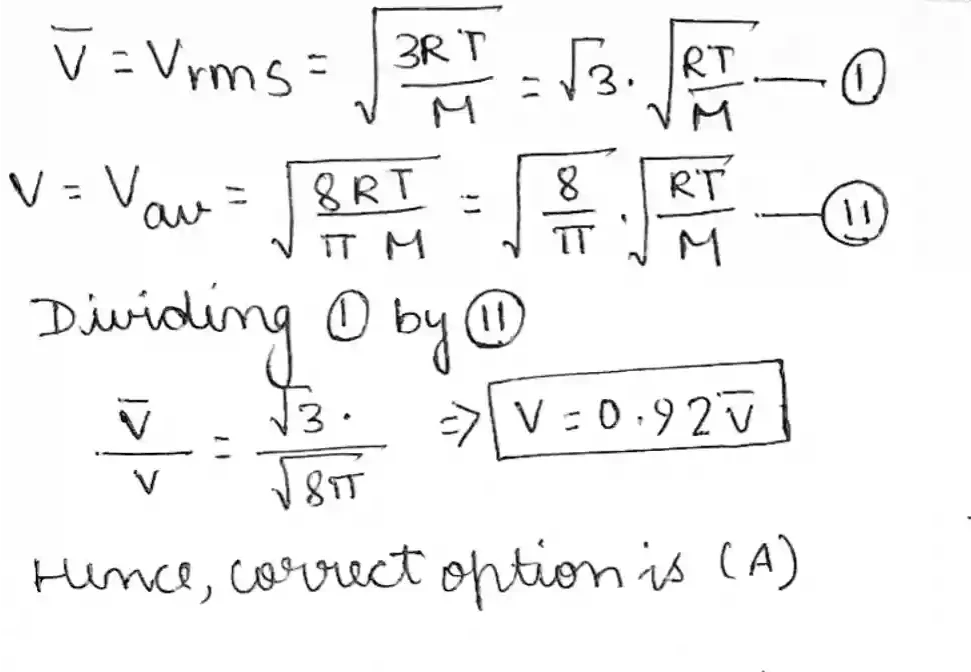 V̄ = Vrms = √(3RT/M) = √3 · √(RT/M) — (I)
V = Vav = √(8RT/πM) = √(8/π) · √(RT/M) — (II)
Dividing (I) by (II)
V̄/V = √3 · / √8π ⇒ V = 0.92 V̄
Hence, correct option is (A)